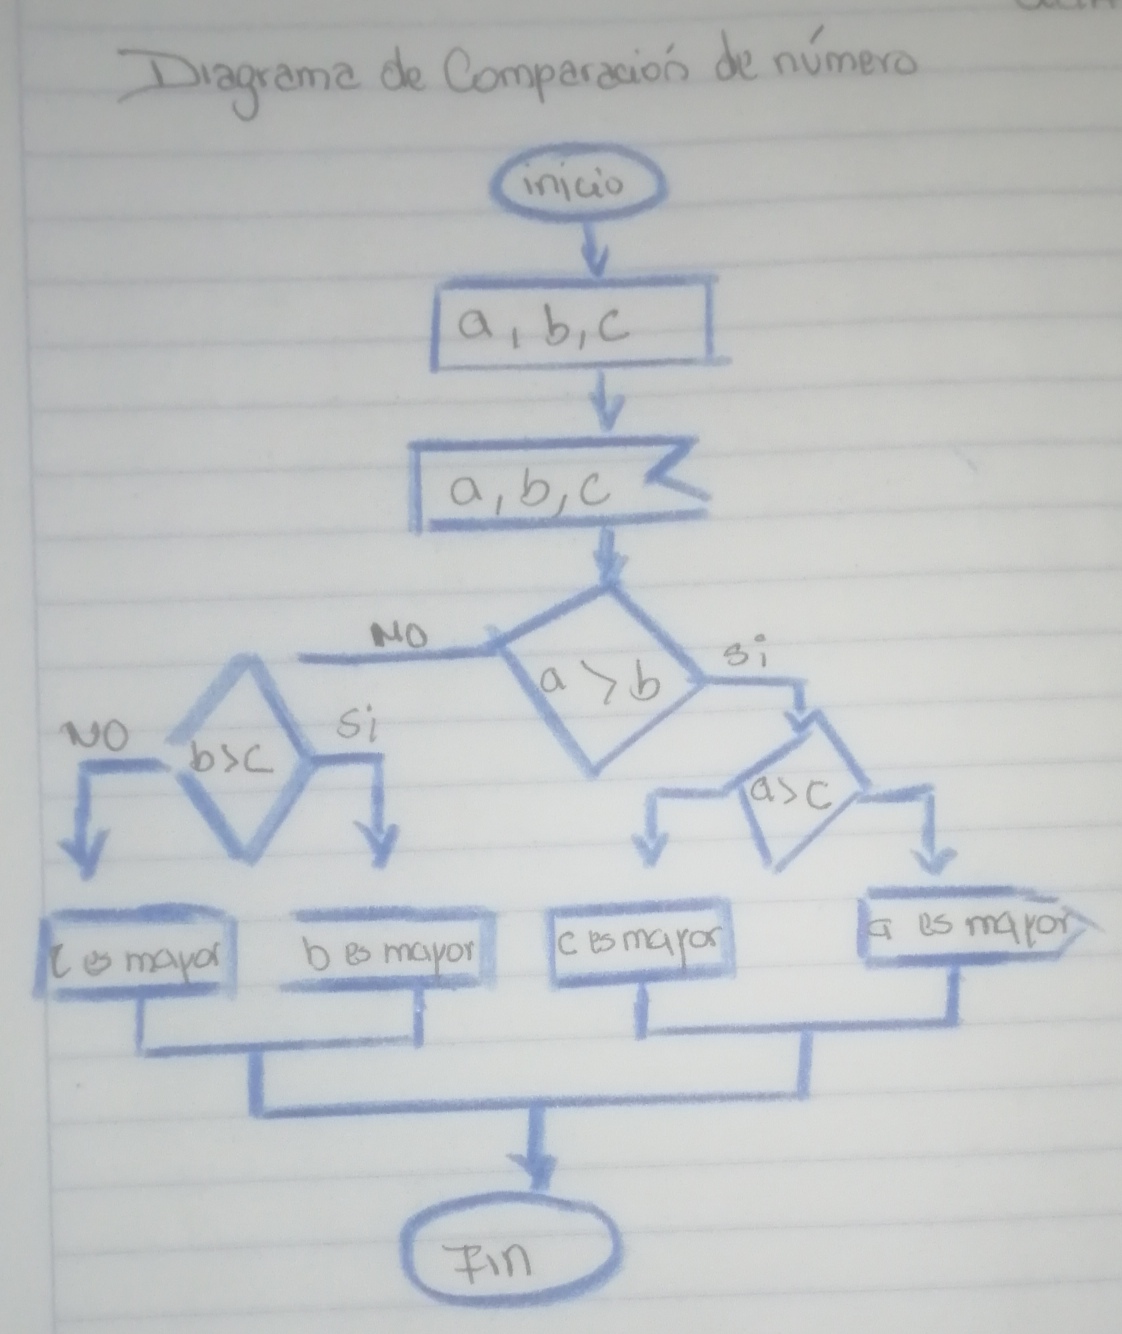 Diagrama de Comparación de número
inicio
a, b, c
a, b, c
a > b
NO
si
b>c
NO
si
a>c
c es mayor
b es mayor
c es mayor
a es mayor
Fin